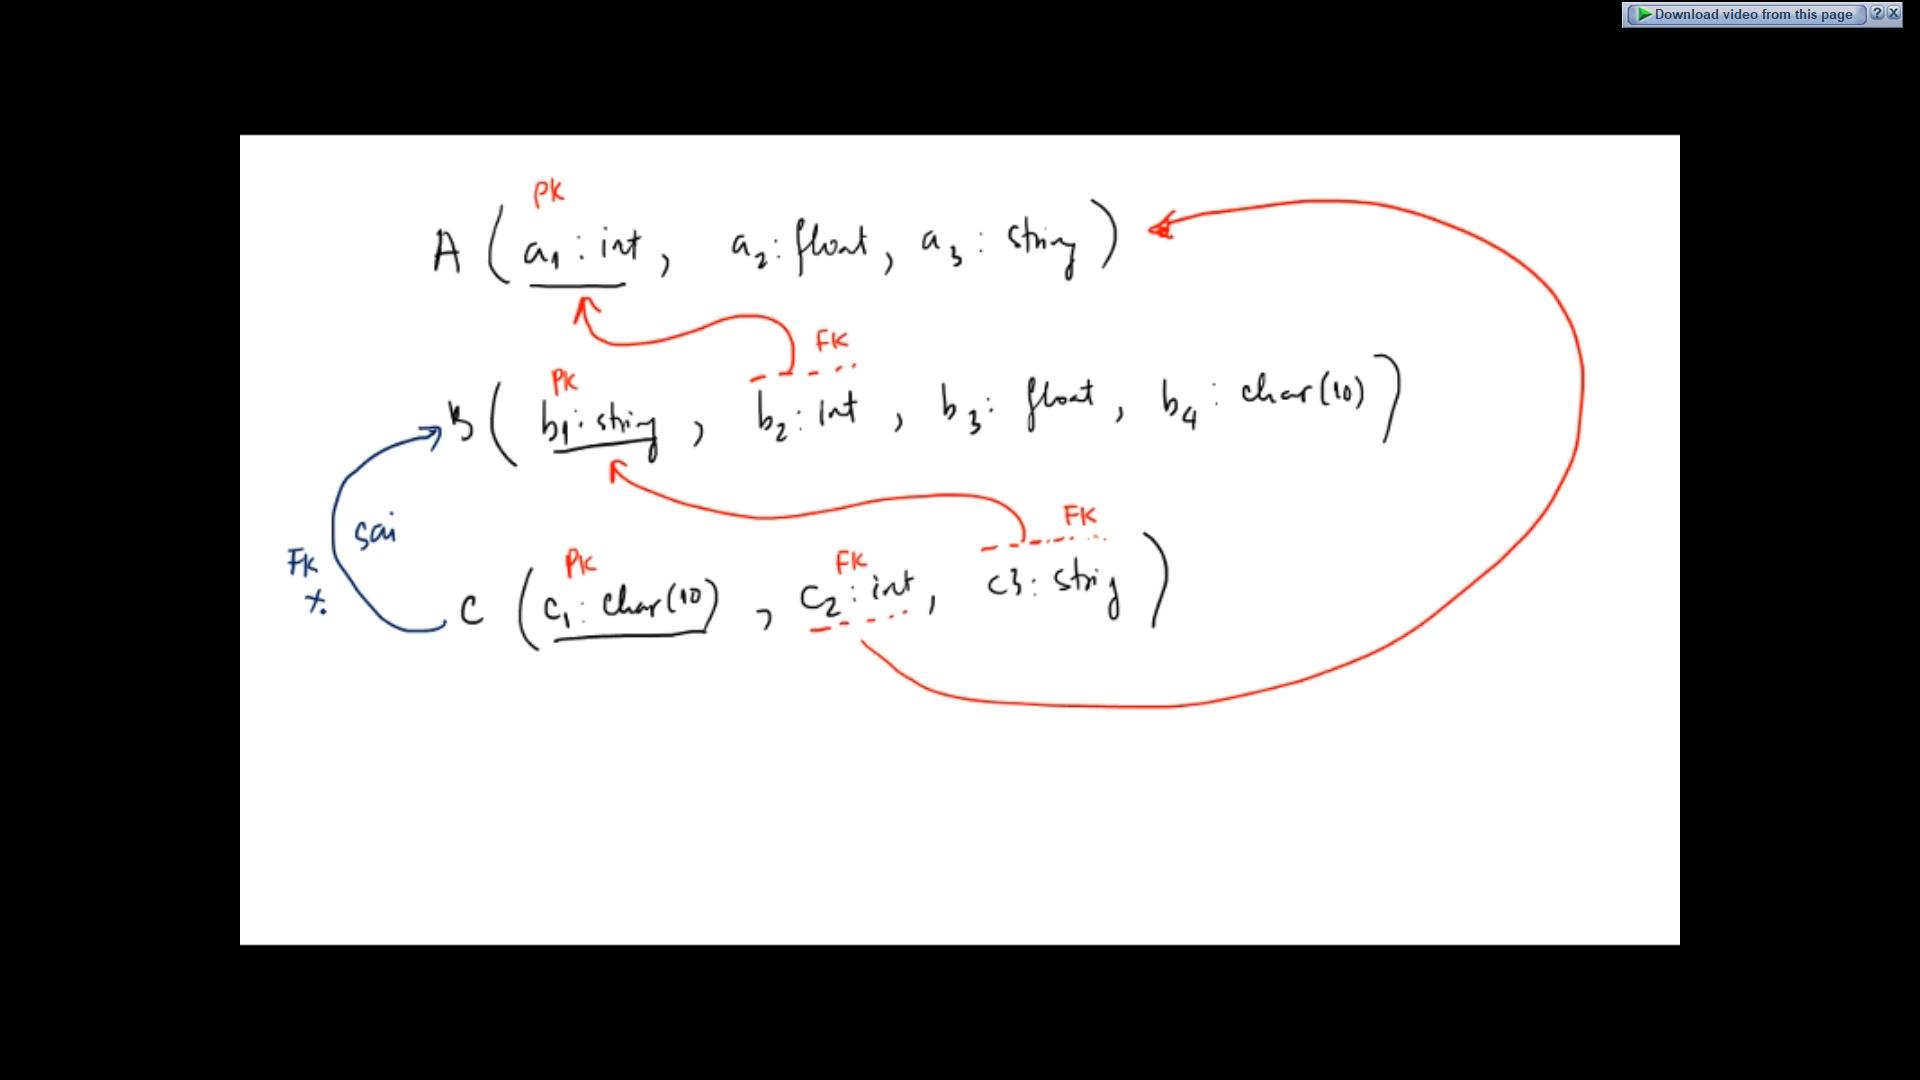 Download video from this page ? X
PK
A ( a1 : int, a2 : float, a3 : string )
FK
PK
B ( b1 : string, b2 : int, b3 : float, b4 : char(10) )
sai
FK
FK
x.
PK
FK
C ( c1 : char(10), c2 : int, c3 : strig )